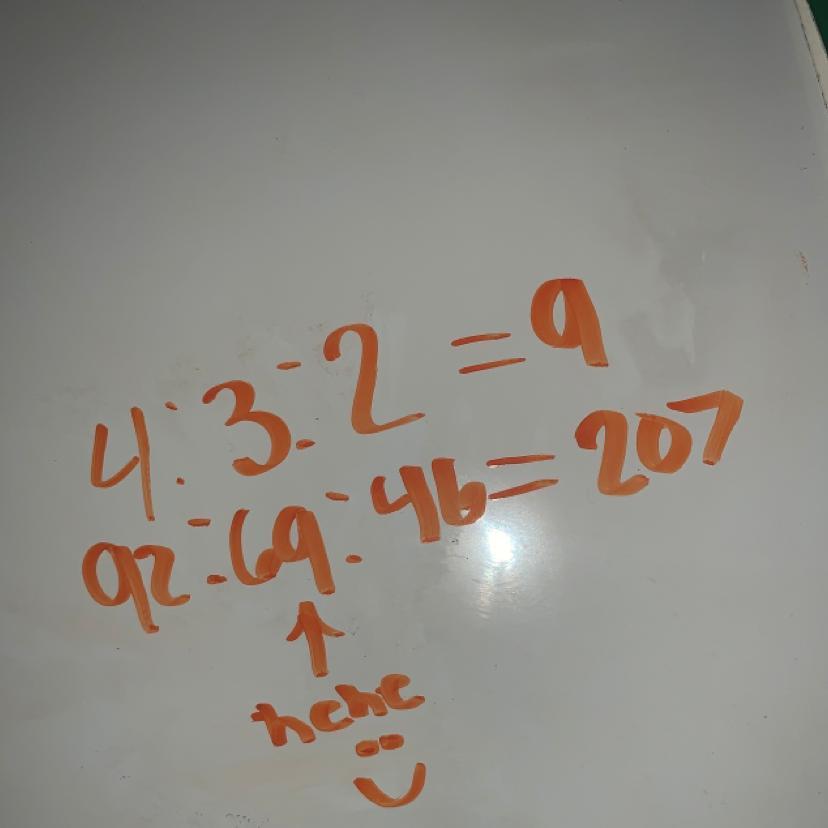 4:3:2 = 9
92:69:46 = 207
↑
hehe
:)